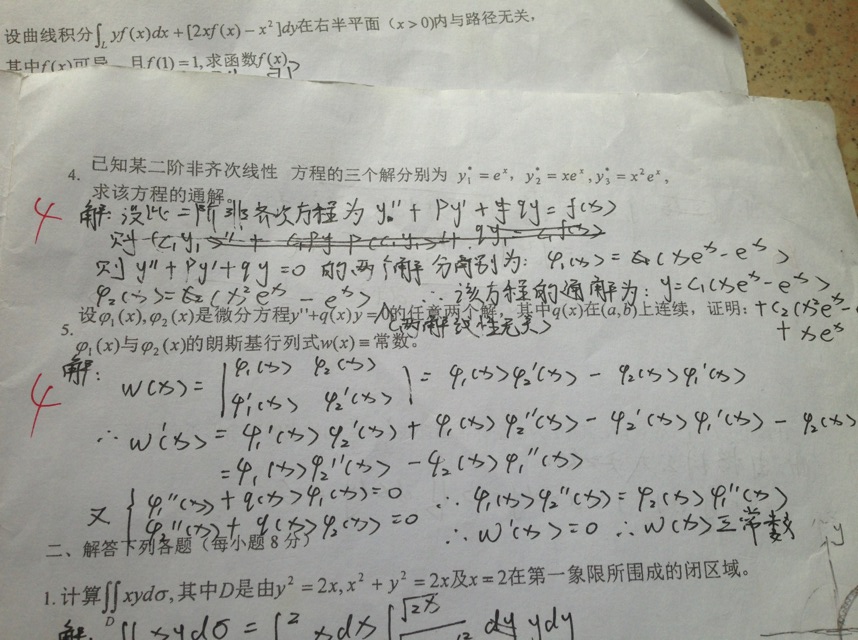 设曲线积分∫_L yf(x)dx+[2xf(x)-x²]dy在右半平面（x>0)内与路径无关，
其中f(x)可导 且f(1)=1,求函数f(x)
4. 已知某二阶非齐次线性 方程的三个解分别为 y₁*=eˣ, y₂*=xeˣ, y₃*=x²eˣ,
求该方程的通解。
4
解:设此二阶非齐次方程为 y''+Py'+qy=f(x)
则 y''+Py'+qy=0 的两个解分别为: φ₁(x)=(xeˣ-eˣ)
φ₂(x)=(x²eˣ-eˣ) ∴该方程的通解为: y=c₁(xeˣ-eˣ)
+c₂(x²eˣ-
+xeˣ
(两解线性无关)
5. 设φ₁(x),φ₂(x)是微分方程y''+q(x)y=0的任意两个解，其中q(x)在(a,b)上连续，证明：
φ₁(x)与φ₂(x)的朗斯基行列式w(x)≡常数。
4
解:
W(x)=|φ₁(x) φ₂(x)
φ₁'(x) φ₂'(x)|=φ₁(x)φ₂'(x)-φ₂(x)φ₁'(x)
∴W'(x)=φ₁'(x)φ₂'(x)+φ₁(x)φ₂''(x)-φ₂'(x)φ₁'(x)-φ₂(x)
=φ₁(x)φ₂''(x)-φ₂(x)φ₁''(x)
又{φ₁''(x)+q(x)φ₁(x)=0 ∴φ₁(x)φ₂''(x)=φ₂(x)φ₁''(x)
φ₂''(x)+q(x)φ₂(x)=0 ∴W'(x)=0 ∴W(x)≡常数
二、解答下列各题（每小题8分）
1.计算∬_D xydσ,其中D是由y²=2x,x²+y²=2x及x=2在第一象限所围成的闭区域。
解: ∬xydσ=∫² xdx∫^√2x ydy
y